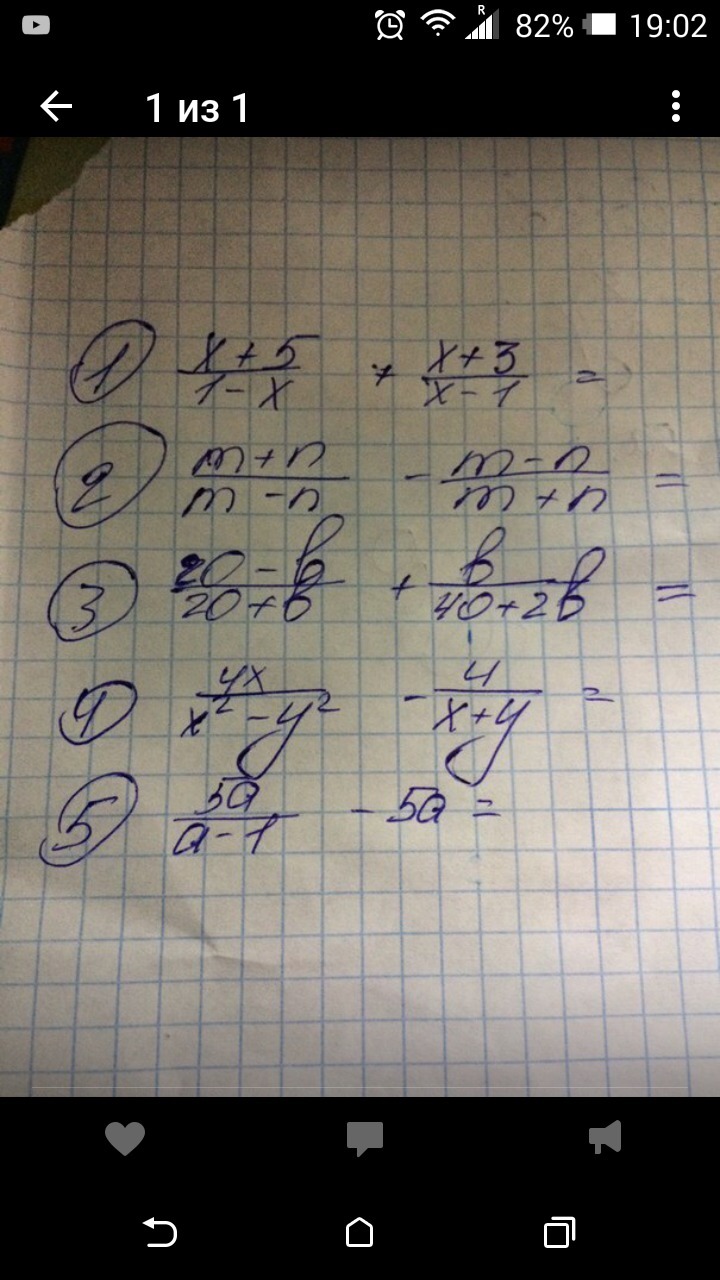 R 82% 19:02
1 из 1
1 (x+5)/(1-x) + (x+3)/(x-1) =
2 (m+n)/(m-n) - (m-n)/(m+n) =
3 (20-b)/(20+b) + b/(40+2b) =
4 4x/(x²-y²) - 4/(x+y) =
5 5a/(a-1) - 5a =